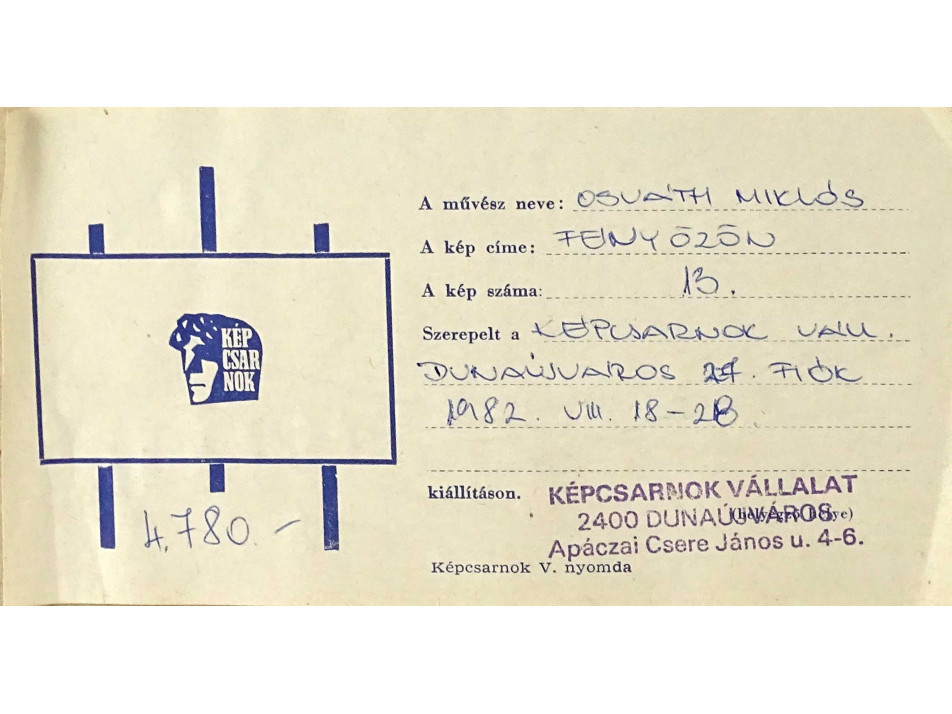 KÉP
CSAR
NOK
4.780.-
A művész neve: OSVÁTH MIKLÓS
A kép címe: FÉNYÖZÖN
A kép száma: 13.
Szerepelt a KÉPCSARNOK VÁLL.
DUNAÚJVÁROS 27. FIÓK
1982. VIII. 18-28
kiállításon.
KÉPCSARNOK VÁLLALAT
2400 DUNAÚJVÁROS
(bélyegző helye)
Apáczai Csere János u. 4-6.
Képcsarnok V. nyomda